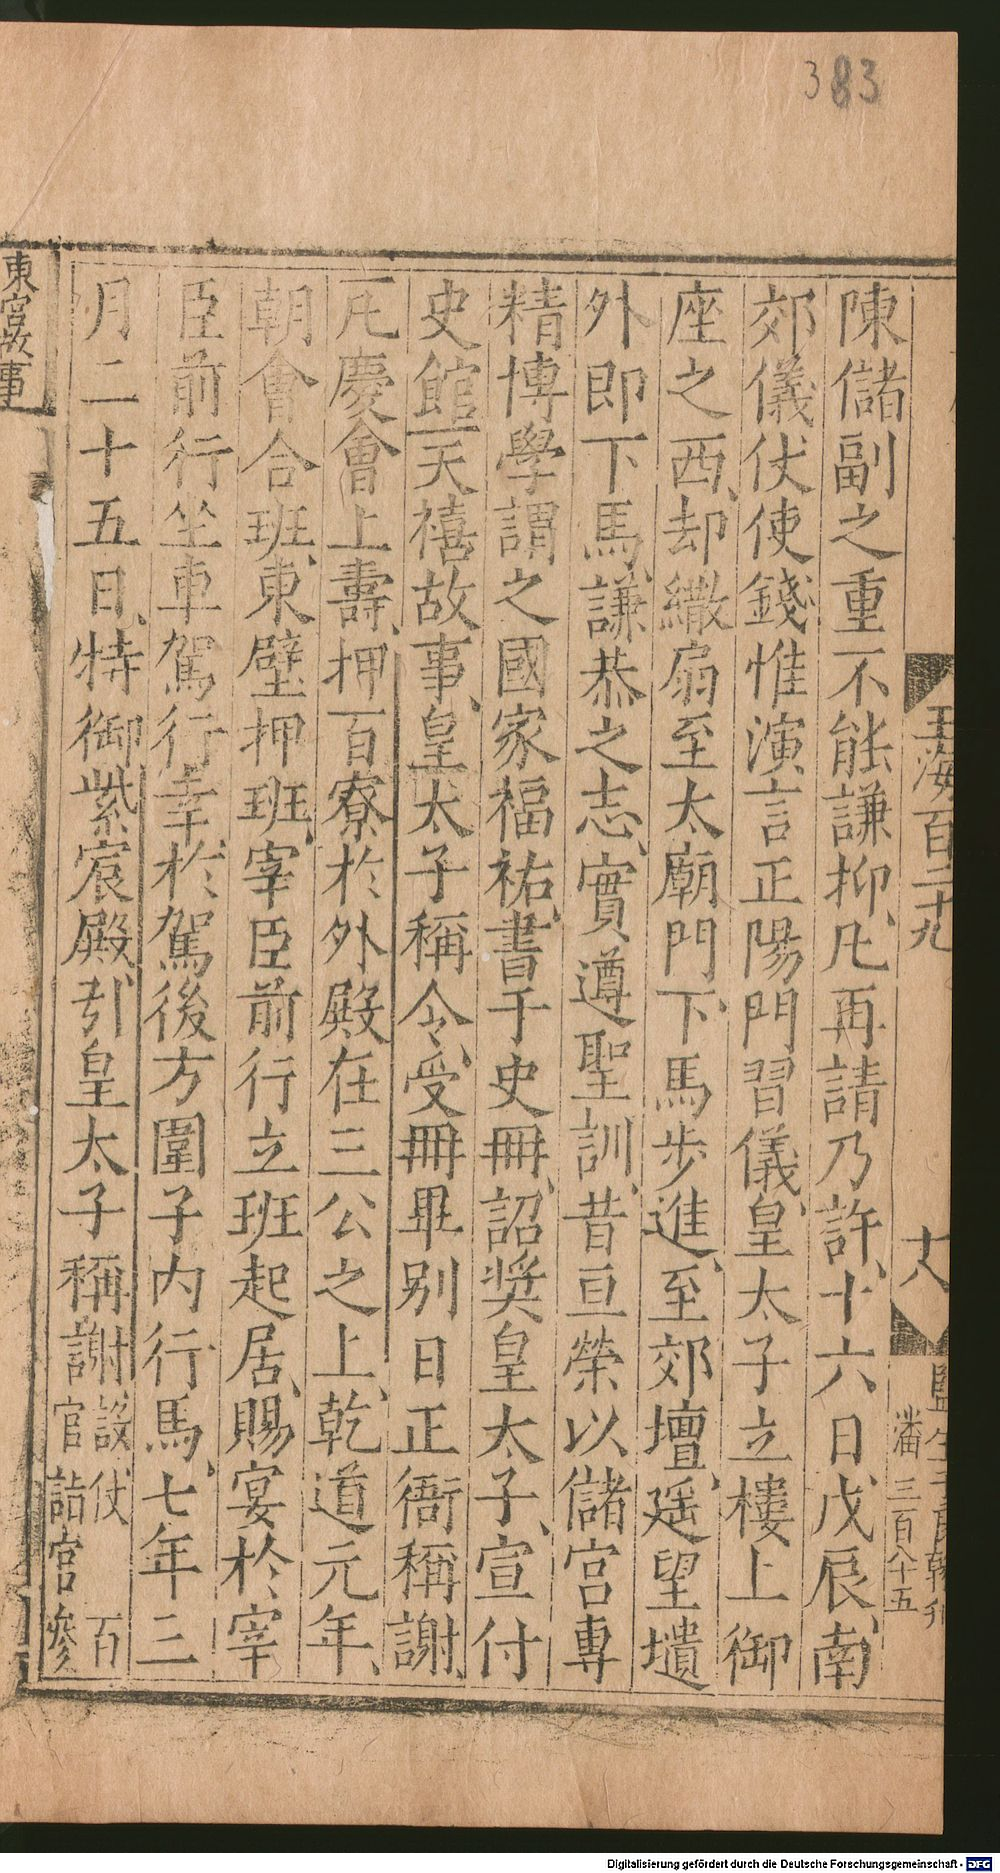 383
玉海百二十九
十八
三百八十五
陳儲副之重不能謙抑凡再請乃許十六日戊辰南
郊儀仗使錢惟演言正陽門習儀皇太子立樓上御
座之西却繖扇至太廟門下馬步進至郊壇遥望壝
外即下馬謙恭之志實遵聖訓昔亘榮以儲宮專
精博學謂之國家福祐書于史冊詔奬皇太子宣付
史館天禧故事皇太子稱令受冊畢别日正衙稱謝
凡慶會上壽押百寮於外殿在三公之上乾道元年
朝會合班東壁押班宰臣前行立班起居賜宴於宰
臣前行坐車駕行幸於駕後方圍子内行馬七年三
月二十五日特御紫宸殿引皇太子稱謝設仗百官詰官參
東宮故事
Digitalisierung gefördert durch die Deutsche Forschungsgemeinschaft - DFG